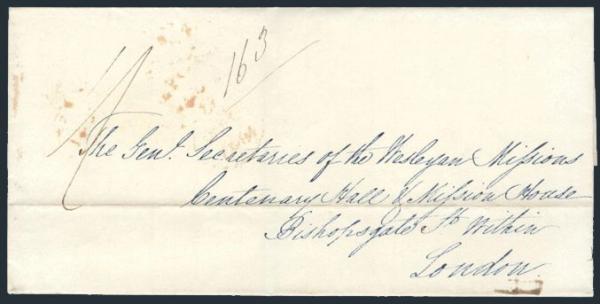 163
The Genl. Secretaries of the Wesleyan Missions
Centenary Hall & Mission House
Bishopsgate St. Within
London.